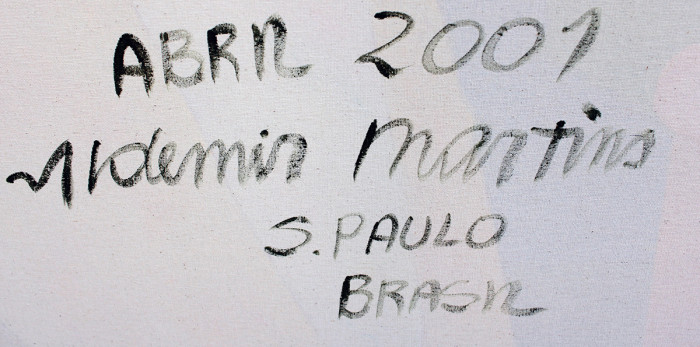 ABRIL 2001
Aldemir Martins
S. PAULO
BRASIL